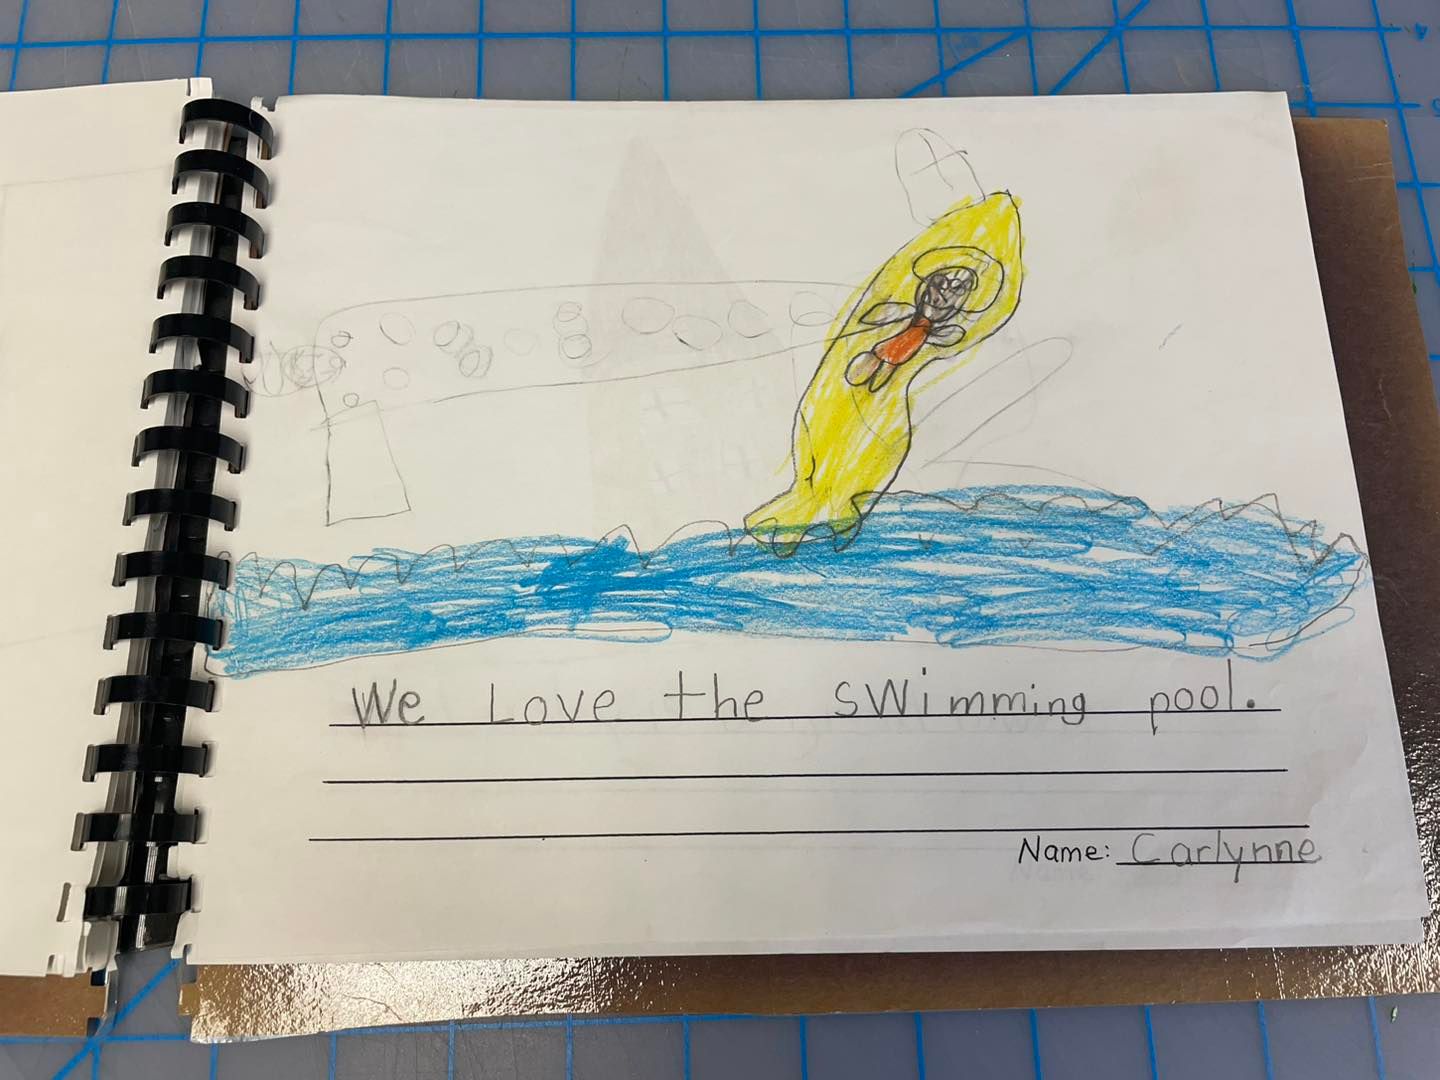 We Love the swimming pool.
Name: Carlynne